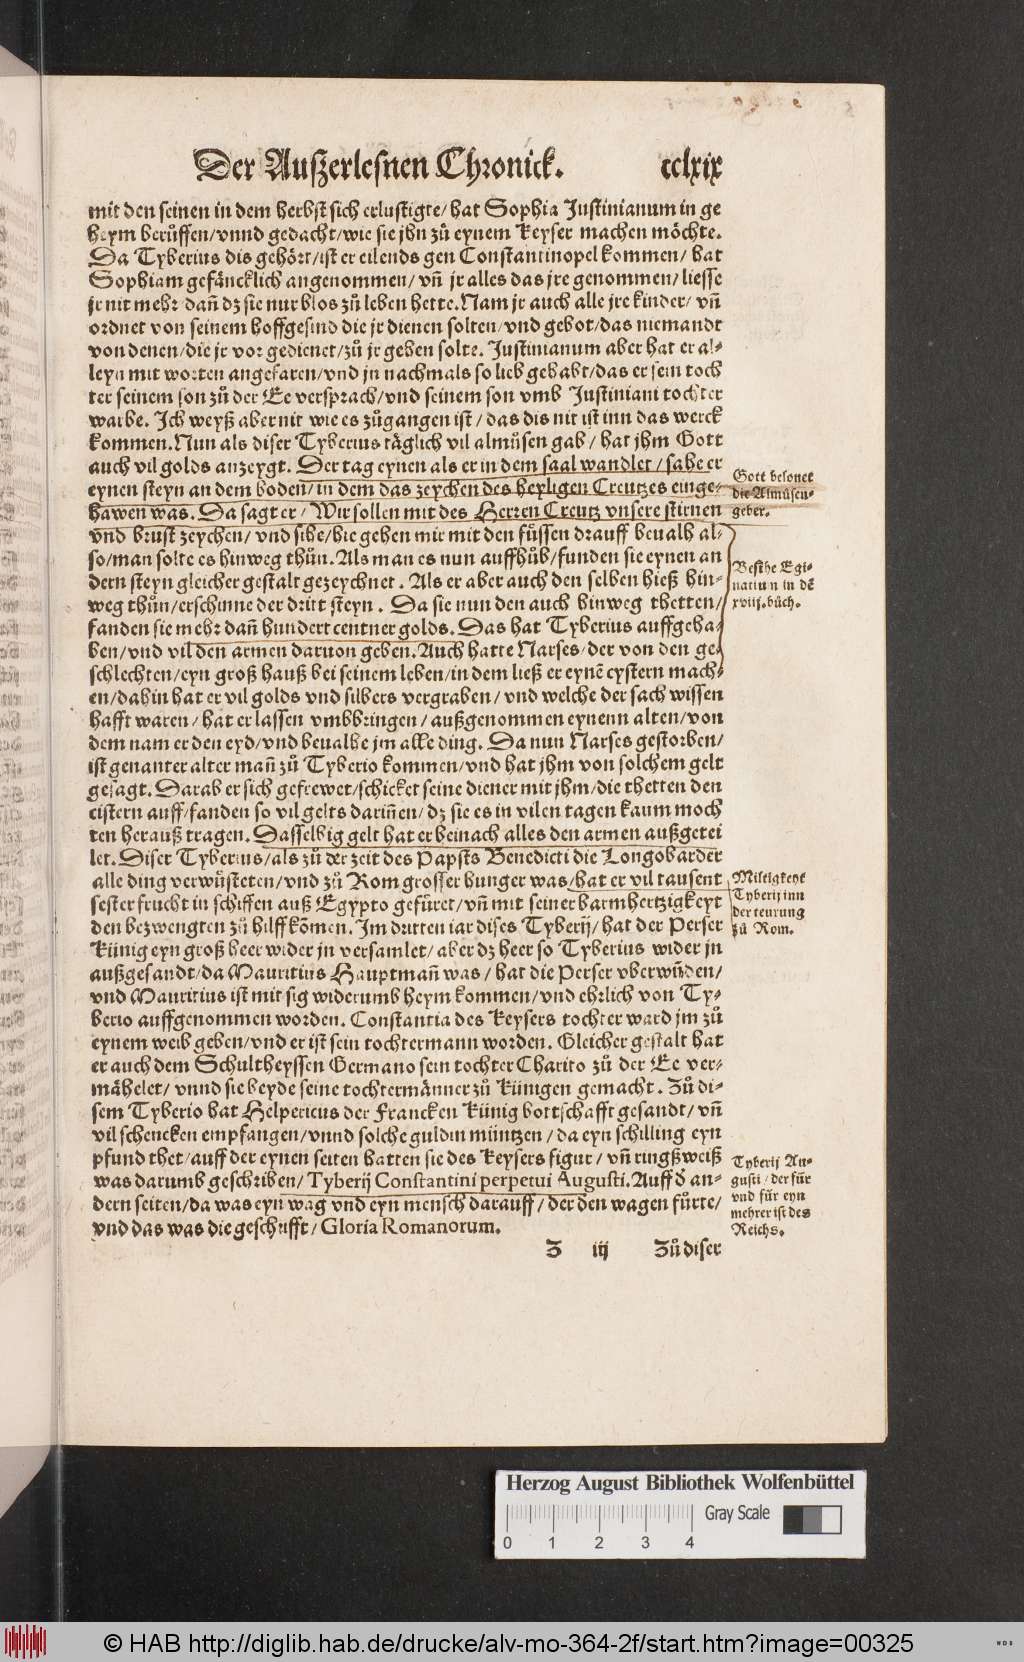 Der Außerlesnen Chronick. cclxix
mit den seinen in dem herbst sich erlustigte/ hat Sophia Justinianum in ge
heym berůffen/ vnnd gedacht/ wie sie jhn zů eynem Keyser machen möchte.
Da Tyberius dis gehört/ ist er eilends gen Constantinopel kommen/ hat
Sophiam gefäncklich angenommen/ vñ jr alles das jre genommen/ liesse
jr nit mehr dañ dz sie nur blos zů leben hette. Nam jr auch alle jre kinder/ vñ
ordnet von seinem hoffgesind die jr dienen solten/ vnd gebot/ das niemandt
von denen/ die jr vor gedienet/ zů jr gehen solte. Justinianum aber hat er al-
leyn mit worten angefaren/ vnd jn nachmals so lieb gehabt/ das er sein toch
ter seinem son zů der Ee versprach/ vnd seinem son vmb Justiniani tochter
warbe. Ich weyß aber nit wie es zůgangen ist/ das dis nit ist inn das werck
kommen. Nun als diser Tyberius täglich vil almůsen gab/ hat jhm Gott
auch vil golds anzeygt. Der tag eynen als er in dem saal wandlet/ sahe er
eynen steyn an dem boden/ in dem das zeychen des heyligen Creutzes einge-
hawen was. Da sagt er/ Wir sollen mit des Herren Creutz vnsere stirnen
vnd brust zeychen/ vnd sihe/ hie gehen mir mit den füssen drauff beualh al-
so/ man solte es hinweg thůn. Als man es nun auffhůb/ funden sie eynen an
dern steyn gleicher gestalt gezeychnet. Als er aber auch den selben hieß hin-
weg thůn/ erschinne der dritt steyn. Da sie nun den auch hinweg thetten/
fanden sie mehr dañ hundert centner golds. Das hat Tyberius auffgeha-
ben/ vnd vil den armen daruon geben. Auch hatte Narses/ der von den ge
schlechten/ eyn groß hauß bei seinem leben/ in dem ließ er eynẽ cystern mach-
en/ dahin hat er vil golds vnd silbers vergraben/ vnd welche der sach wissen
hafft waren/ hat er lassen vmbbringen/ außgenommen eynenn alten/ von
dem nam er den eyd/ vnd beualhe jm alle ding. Da nun Narses gestorben/
ist genanter alter mañ zů Tyberio kommen/ vnd hat jhm von solchem gelt
gesagt. Darab er sich gefrewet/ schicket seine diener mit jhm/ die thetten den
cistern auff/ fanden so vil gelts dariñen/ dz sie es in vilen tagen kaum moch
ten herauß tragen. Dasselbig gelt hat er beinach alles den armen außgetei
let. Diser Tyberius/ als zů der zeit des Papsts Benedicti die Longobarder
alle ding verwůsteten/ vnd zů Rom grosser hunger was/ hat er vil tausent
sester frucht in schiffen auß Egypto gefüret/ vñ mit seiner barmhertzigkeyt
den bezwengten zů hilff kõmen. Im dritten iar dises Tyberij/ hat der Perser
Künig eyn groß heer wider jn versamlet/ aber dz heer so Tyberius wider jn
außgesandt/ da Mauritius Hauptmañ was/ hat die Perser vberwũden/
vnd Mauritius ist mit sig widerumb heym kommen/ vnd ehrlich von Ty-
berio auffgenommen worden. Constantia des Keysers tochter ward jm zů
eynem weib geben/ vnd er ist sein tochtermann worden. Gleicher gestalt hat
er auch dem Schultheyssen Germano sein tochter Charito zů der Ee ver-
mähelet/ vnnd sie beyde seine tochtermänner zů Künigen gemacht. Zů di-
sem Tyberio hat Helpericus der Francken Künig bottschafft gesandt/ vñ
vil schencken empfangen/ vnnd solche guldin müntzen/ da eyn schilling eyn
pfund thet/ auff der eynen seiten hatten sie des Keysers figur/ vñ ringßweiß
was darumb geschriben/ Tyberij Constantini perpetui Augusti. Auff d' an-
dern seiten/ da was eyn wag vnd eyn mensch darauff/ der den wagen fürte/
vnd das was die geschrifft/ Gloria Romanorum.
Z iij Zů diser
Gott belonet
die Almůsen-
geber.
Besihe Egi-
natiun in dẽ
xviij. bůch.
Miltigkeyt
Tyberij inn
der teurung
zů Rom.
Tyberij Au-
gusti/ der für
vnd für eyn
mehrer ist des
Reichs.
Herzog August Bibliothek Wolfenbüttel
Gray Scale
0 1 2 3 4
© HAB http://diglib.hab.de/drucke/alv-mo-364-2f/start.htm?image=00325